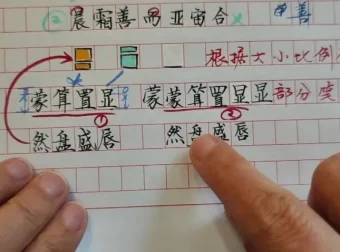 ② 晨霜善而亚宙合 × 善
根据大小比例
蒙算置显 蒙蒙算置显显部分变
① ②
然盘盛唇 然盘盛唇